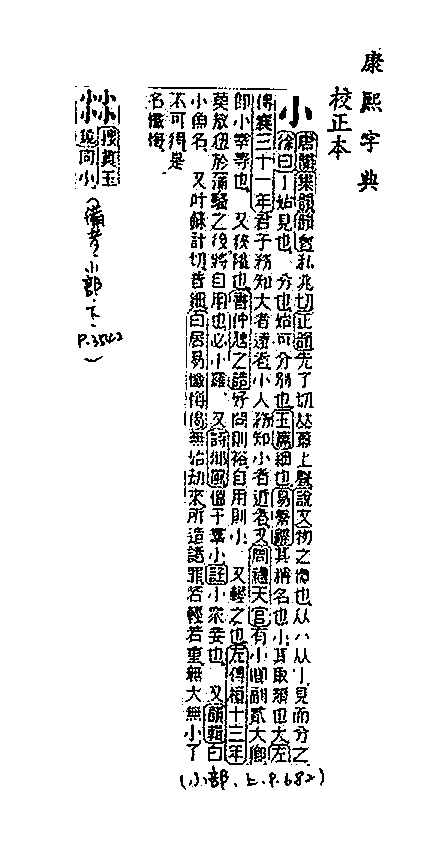 康熙字典
校正本
小 唐韻集韻韻會私兆切正韻先了切𠀤蕭上聲說文物之微也从八从丨見而分之
徐曰丨始見也八分也始可分別也玉篇細也易繫辭其稱名也小其取類也大左
傳襄三十一年君子務知大者遠者小人務知小者近者又周禮天官有小宰副貳大卿
卽小宰等也又狹隘也書仲虺之誥好問則裕自用則小又輕之也左傳桓十三年
莫敖狃於蒲騷之役將自用也必小羅又詩邶風慍于羣小註小衆妾也又韻輯白
小魚名又叶蘇計切音細白居易懺悔偈無始劫來所造諸罪若輕若重無大無小了
不可得是
名懺悔
𡮐 搜眞玉
鏡同小
(備考·小部·下·
P.3542
)
(小部、上.P.682)